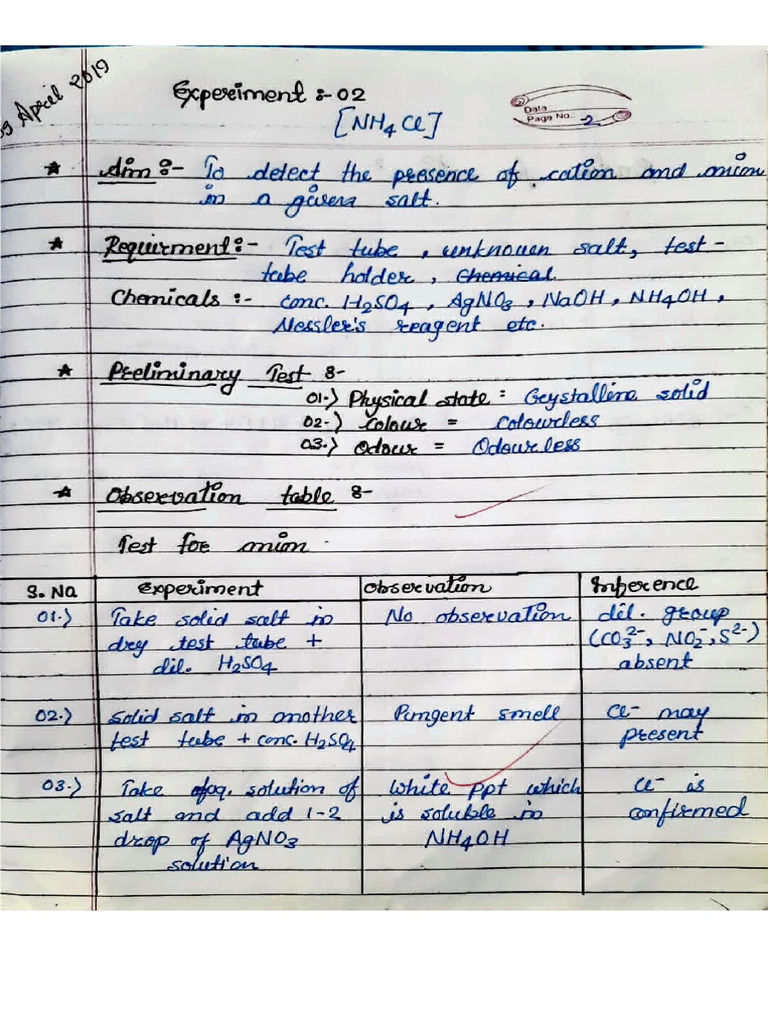 April 2019
Experiment :- 02
[NH4Cl]
Date
Page No.: 2
★ Aim :- To detect the presence of cation and anion
in a given salt.
★ Requirment :- Test tube, unknown salt, test-
tube holder, Chemical
Chemicals :- conc. H2SO4, AgNO3, NaOH, NH4OH,
Nessler's reagent etc.
★ Preliminary Test :-
01.) Physical state = Crystalline solid
02.) Colour = Colourless
03.) Odour = Odourless
★ Observation table :-
Test for anion.
S.No Experiment Observation Inference
01.) Take solid salt in No observation dil. group
dry test tube + (CO3²⁻, NO2⁻, S²⁻)
dil. H2SO4 absent
02.) Solid salt in another Pungent smell Cl⁻ may
test tube + conc. H2SO4 present
03.) Take aq. solution of White ppt which Cl⁻ is
salt and add 1-2 is soluble in confirmed
drop of AgNO3 NH4OH
solution